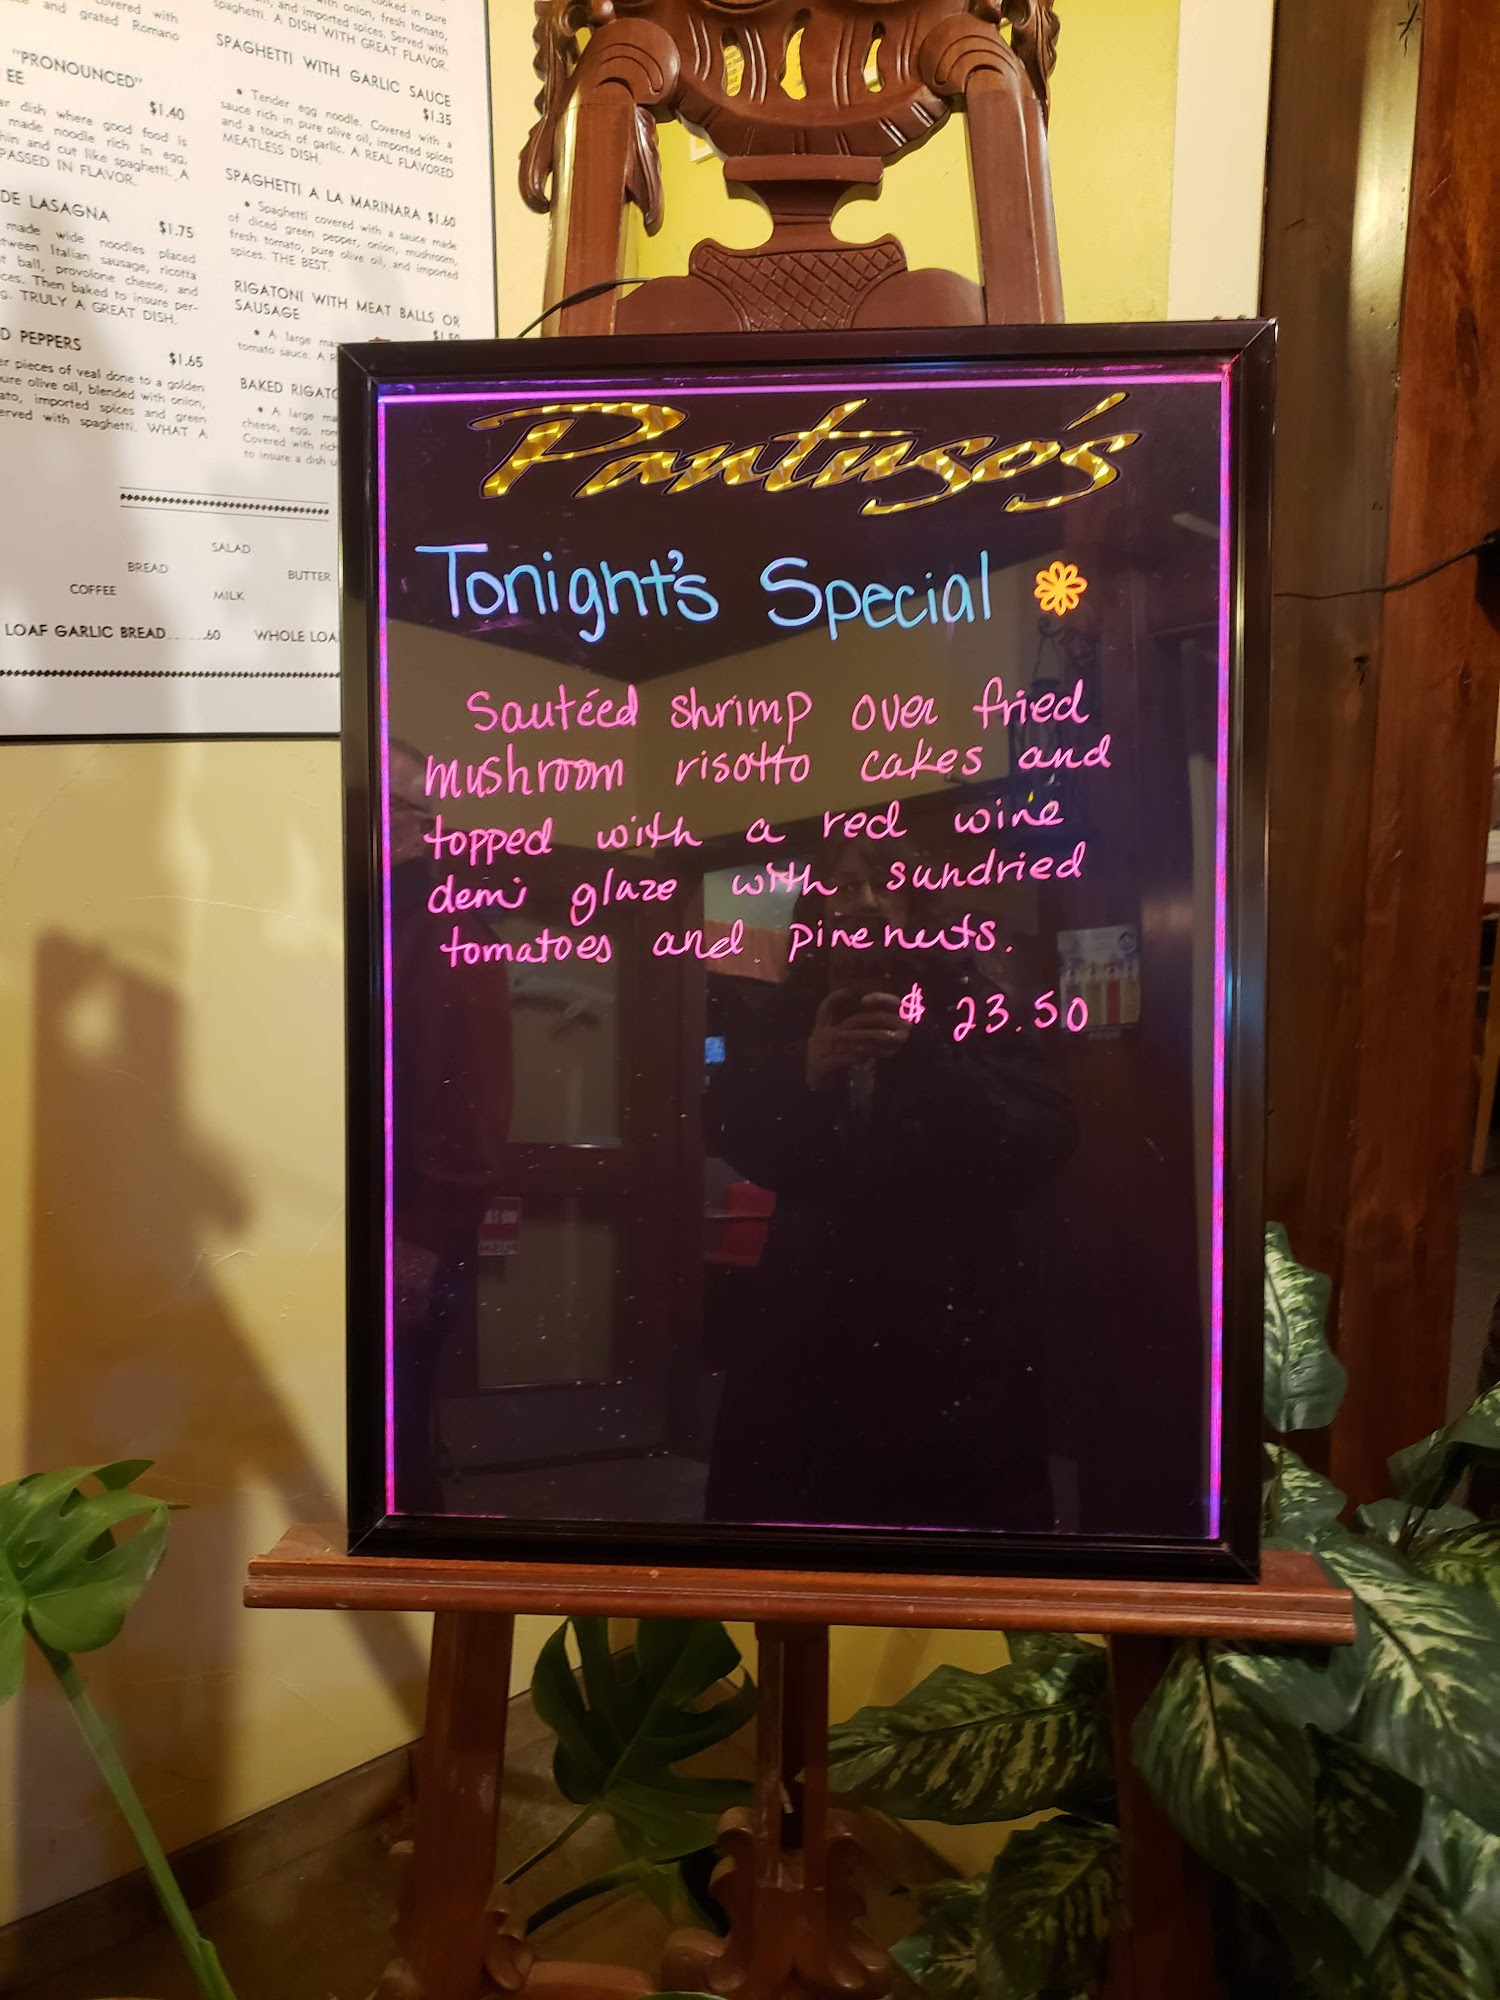 overed with
and grated Romano
"PRONOUNCED"
EE
$1.40
dish where good food is
made noodle rich in egg,
hin and cut like spaghetti. A
PASSED IN FLAVOR.
DE LASAGNA
$1.75
made wide noodles placed
tween Italian sausage, ricotta
ball, provolone cheese, and
ces. Then baked to insure per-
g. TRULY A GREAT DISH.
D PEPPERS
$1.65
er pieces of veal done to a golden
ure olive oil, blended with onion,
ato, imported spices and green
erved with spaghetti. WHAT A
cooked in pure
with onion, fresh tomato,
and imported spices. Served with
spaghetti. A DISH WITH GREAT FLAVOR.
SPAGHETTI WITH GARLIC SAUCE
$1.35
• Tender egg noodle. Covered with a
sauce rich in pure olive oil, imported spices
and a touch of garlic. A REAL FLAVORED
MEATLESS DISH.
SPAGHETTI A LA MARINARA $1.60
• Spaghetti covered with a sauce made
of diced green pepper, onion, mushroom,
fresh tomato, pure olive oil, and imported
spices. THE BEST.
RIGATONI WITH MEAT BALLS OR
SAUSAGE
$1.50
• A large ma
tomato sauce. A
BAKED RIGATO
• A large ma
cheese, egg, rom
Covered with rich
to insure a dish u
SALAD
BREAD
BUTTER
COFFEE
MILK
LOAF GARLIC BREAD......60 WHOLE LOA
Pantuso's
Tonight's Special
Sautéed shrimp over fried
mushroom risotto cakes and
topped with a red wine
demi glaze with sundried
tomatoes and pine nuts.
$ 23.50